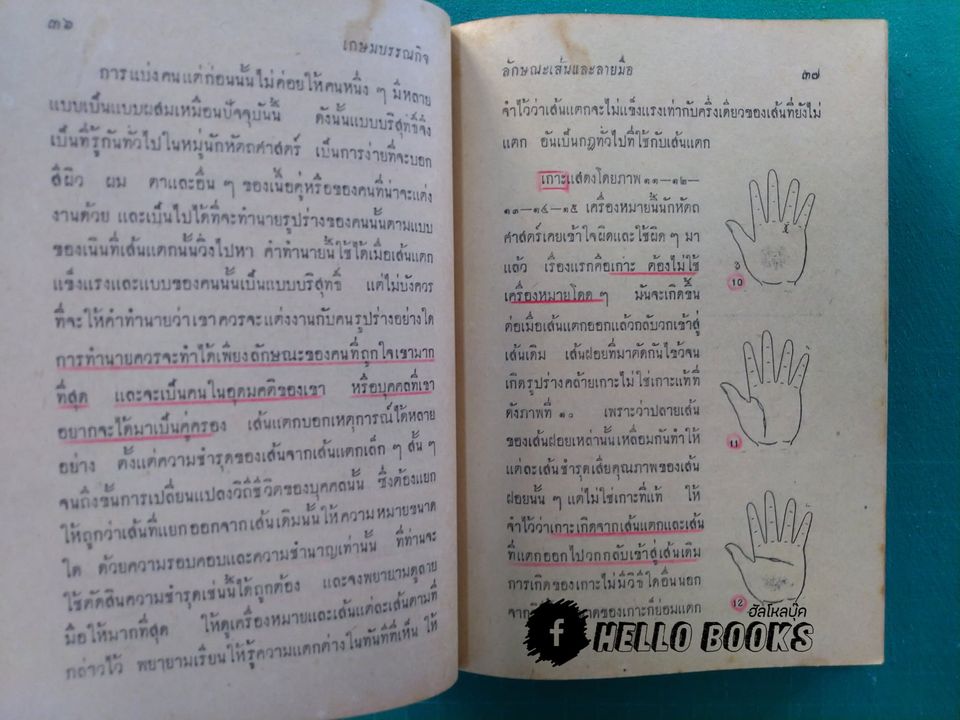 ๓๖
เกษมบรรณกิจ
การแบ่งคนแต่ก่อนนั้นไม่ค่อยให้คนหนึ่ง ๆ มีหลาย
แบบเป็นแบบผสมเหมือนปัจจุบันนี้ ดังนั้นแบบบริสุทธิ์จึง
เป็นที่รู้กันทั่วไปในหมู่นักหัตถศาสตร์ เป็นการง่ายที่จะบอก
สีผิว ผม ตาและอื่น ๆ ของเนื้อคู่หรือของคนที่น่าจะแต่ง
งานด้วย และเป็นไปได้ที่จะทำนายรูปร่างของคนนั้นตามแบบ
ของเนินที่เส้นแตกนั้นวิ่งไปหา คำทำนายนี้ใช้ได้เมื่อเส้นแตก
แข็งแรงและแบบของคนนั้นเป็นแบบบริสุทธิ์ แต่ไม่บังควร
ที่จะให้คำทำนายว่าเขาควรจะแต่งงานกับคนรูปร่างอย่างใด
การทำนายควรจะทำได้เพียงลักษณะของคนที่ถูกใจเขามาก
ที่สุด และจะเป็นคนในอุดมคติของเขา หรือบุคคลที่เขา
อยากจะได้มาเป็นคู่ครอง เส้นแตกบอกเหตุการณ์ได้หลาย
อย่าง ตั้งแต่ความชำรุดของเส้นจากเส้นแตกเล็ก ๆ สั้น ๆ
จนถึงขั้นการเปลี่ยนแปลงวิถีชีวิตของบุคคลนั้น ซึ่งต้องแยก
ให้ถูกว่าเส้นที่แยกออกจากเส้นเดิมนั้นให้ความหมายขนาด
ใด ด้วยความรอบคอบและความชำนาญเท่านั้น ที่ท่านจะ
ใช้ตัดสินความชำรุดเช่นนี้ได้ถูกต้อง และจงพยายามดูลาย
มือให้มากที่สุด ให้ดูเครื่องหมายและเส้นแต่ละเส้นตามที่
กล่าวไว้ พยายามเรียนให้รู้ความแตกต่างในทันทีที่เห็น ให้
ลักษณะเส้นและลายมือ
๓๗
จำไว้ว่าเส้นแตกจะไม่แข็งแรงเท่ากับครึ่งเดียวของเส้นที่ยังไม่
แตก อันเป็นกฎทั่วไปที่ใช้กับเส้นแตก
เกาะแสดงโดยภาพ ๑๑—๑๒—
๑๓—๑๔—๑๕ เครื่องหมายนี้นักหัตถ
ศาสตร์เคยเข้าใจผิดและใช้ผิด ๆ มา
แล้ว เรื่องแรกคือเกาะ ต้องไม่ใช้
เครื่องหมายโดด ๆ มันจะเกิดขึ้น
ต่อเมื่อเส้นแตกออกแล้วกลับวกเข้าสู่
เส้นเดิม เส้นฝอยที่มาตัดกันไขว้จน
เกิดรูปร่างคล้ายเกาะไม่ใช่เกาะแท้ที่
ดังภาพที่ ๑๐ เพราะว่าปลายเส้น
ของเส้นฝอยเหล่านั้นเหลื่อมกันทำให้
แต่ละเส้นชำรุดเสียคุณภาพของเส้น
ฝอยนั้น ๆ แต่ไม่ใช่เกาะที่แท้ ให้
จำไว้ว่าเกาะเกิดจากเส้นแตกและเส้น
ที่แตกออกไปวกกลับเข้าสู่เส้นเดิม
การเกิดของเกาะไม่มีวิธีใดอื่นนอก
ของเกาะก็ย่อมแตก
10
11
12
ฮัลโหลบุ๊ค
f HELLO BOOKS